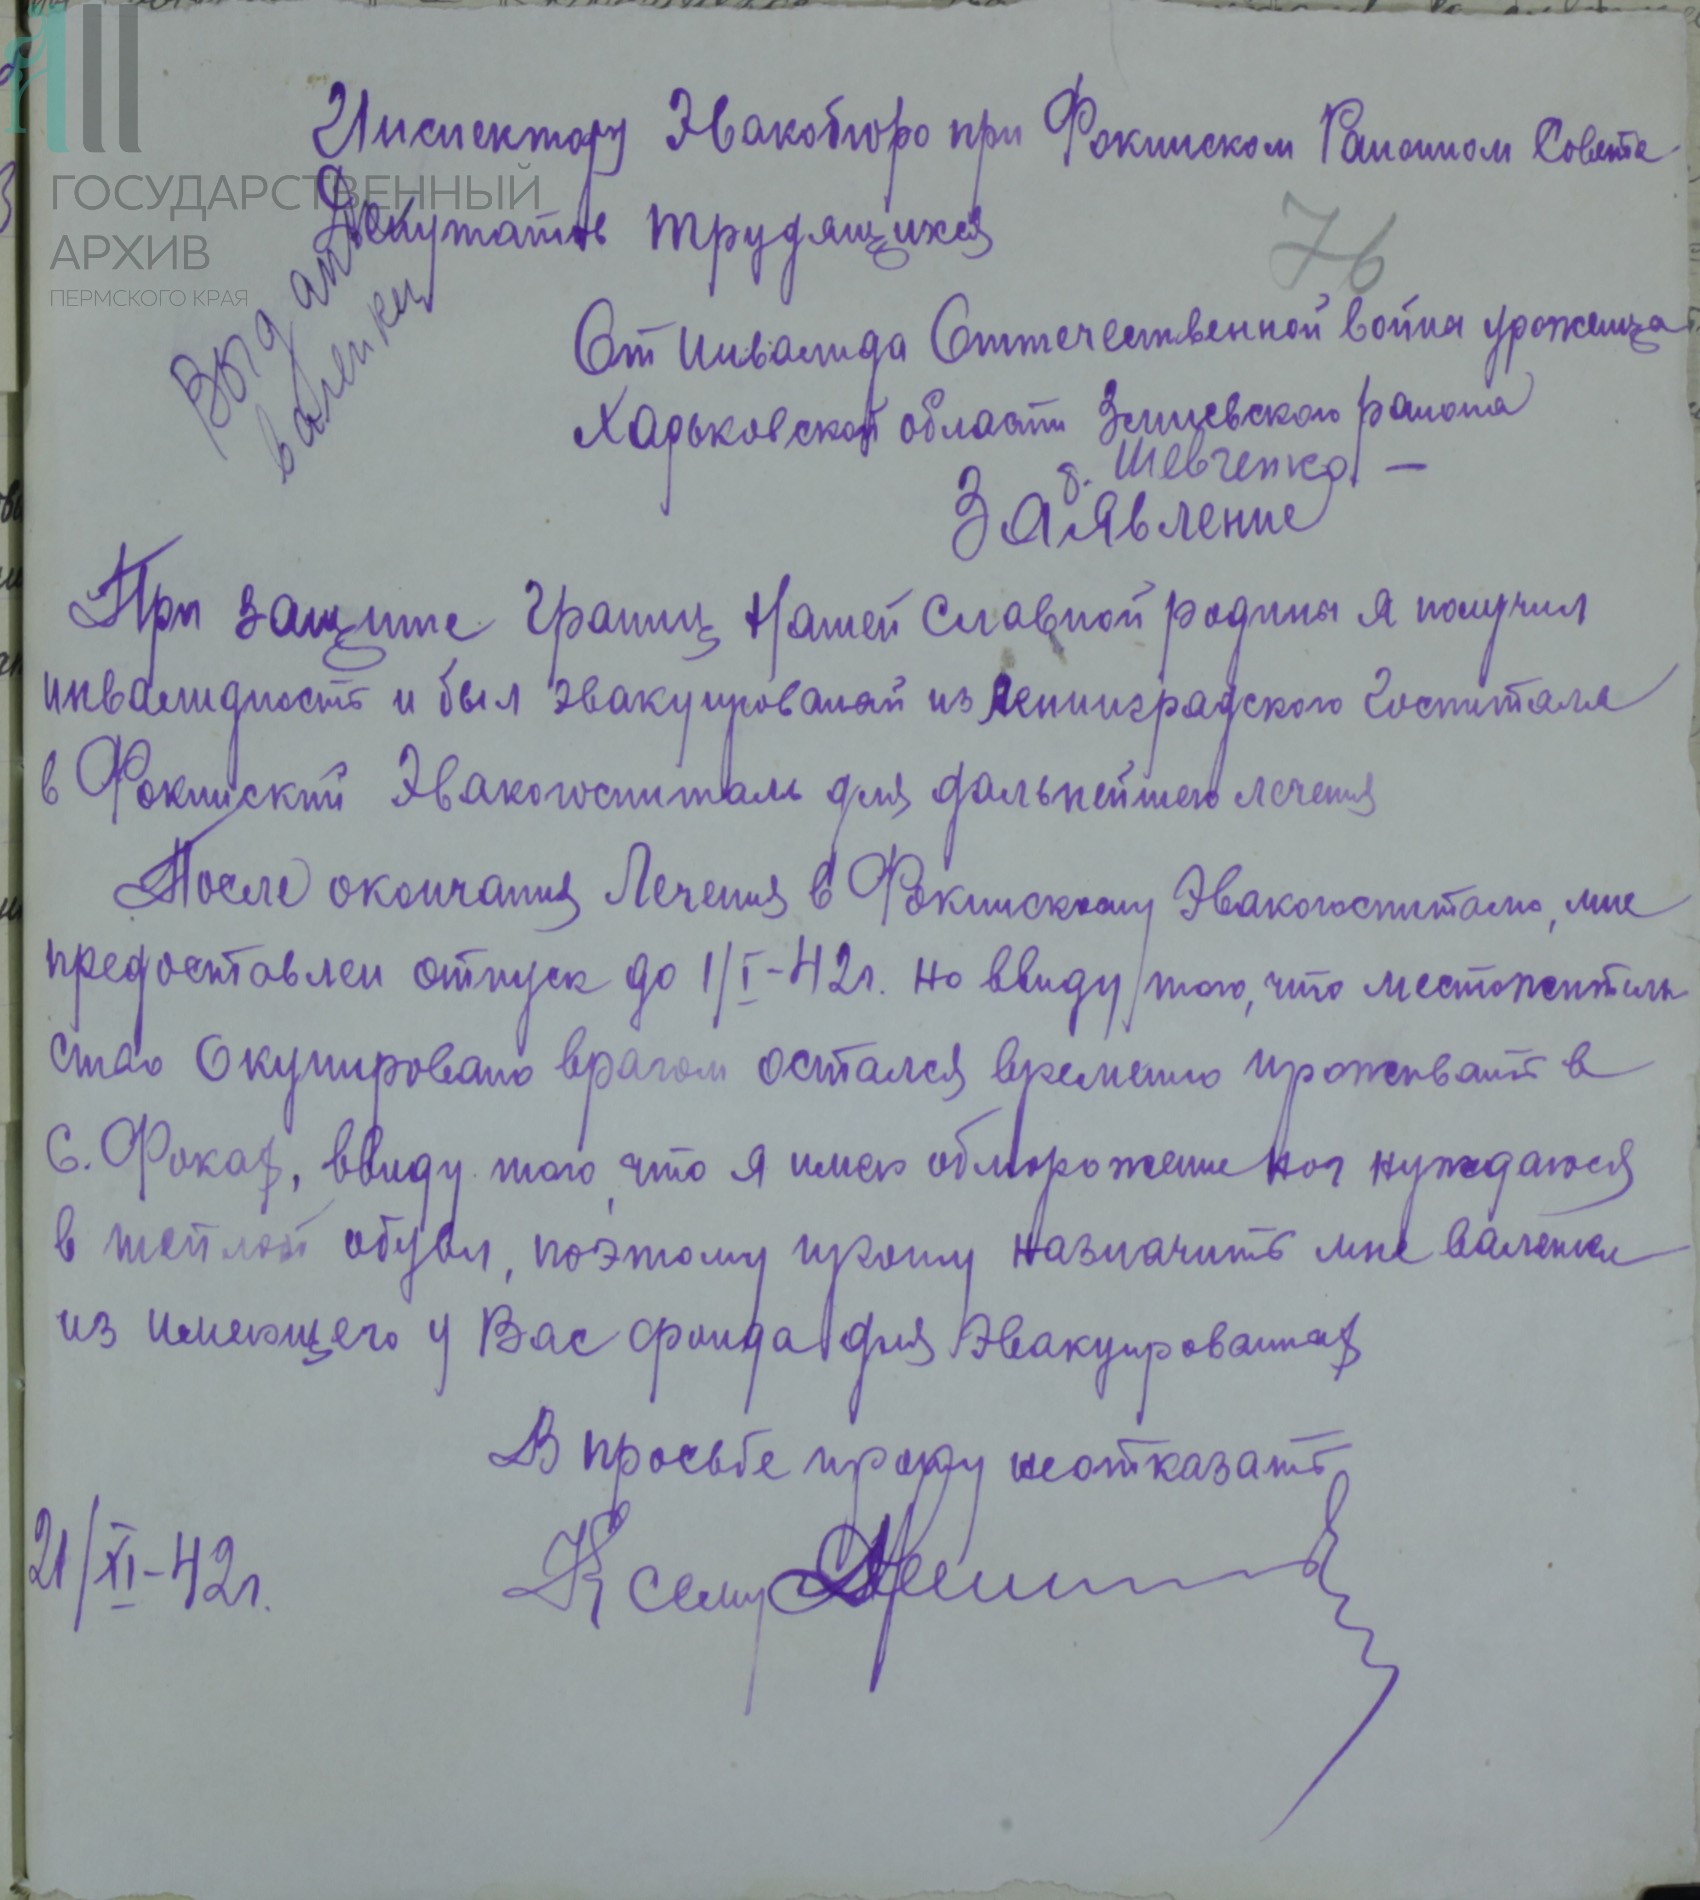 Инспектору Эвакобюро при Фокинском Районном Совете
Депутатов трудящихся
ГОСУДАРСТВЕННЫЙ
АРХИВ
ПЕРМСКОГО КРАЯ
Выдать
валенки
76
От инвалида Отечественной войны уроженца
Харьковской области Змиевского района
Шевченко —
Заявление
При защите границ Нашей Славной родины я получил
инвалидность и был эвакуированый из Ленинградского Госпиталя
в Фокинский Эвакогоспиталь для дальнейшего лечения
После окончания Лечения в Фокинскому Эвакогоспиталю, мне
предоставлен отпуск до 1/I-42г. но ввиду того, что местожитель
ство Окупировано врагом остался временно проживать в
с. Фоках, ввиду того, что я имею обморожение ног нуждаюся
в теплой обуви, поэтому прошу назначить мне валенки
из имеющего у Вас фонда для Эвакуированых
В просьбе прошу неотказать
21/XI-42г.
К сему